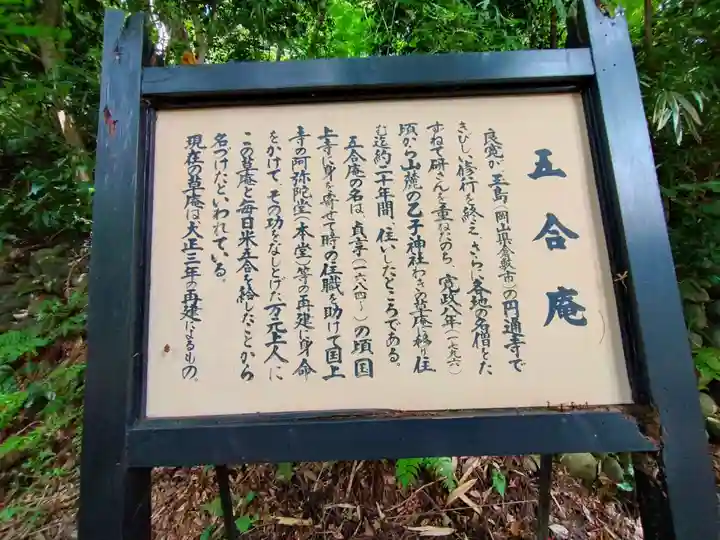 五合庵
良寛が玉島(岡山県倉敷市)の円通寺で
きびしい修行を終え、さらに各地の名僧をた
ずねて研さんを重ねたのち、寛政八年(一七九六)
頃から山麓の乙子神社わきの草庵に移り住
む迄約二十年間、住いしたところである。
五合庵の名は、貞享(一六八四〜)の頃国
上寺に身を寄せて時の住職を助けて国上
寺の阿弥陀堂(本堂)等の再建に身命
をかけて、その功をなしとげた万元上人に
この草庵と毎日米五合を給したことから
名づけたといわれている。
現在の草庵は大正三年の再建によるもの。